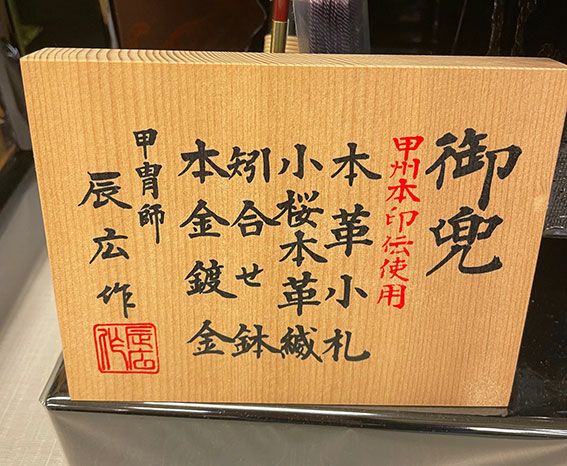 御兜
甲州本印伝使用
本革小札
小桜本革縅
矧合せ鉢
本金鍍金
甲冑師
辰広作
辰広
作